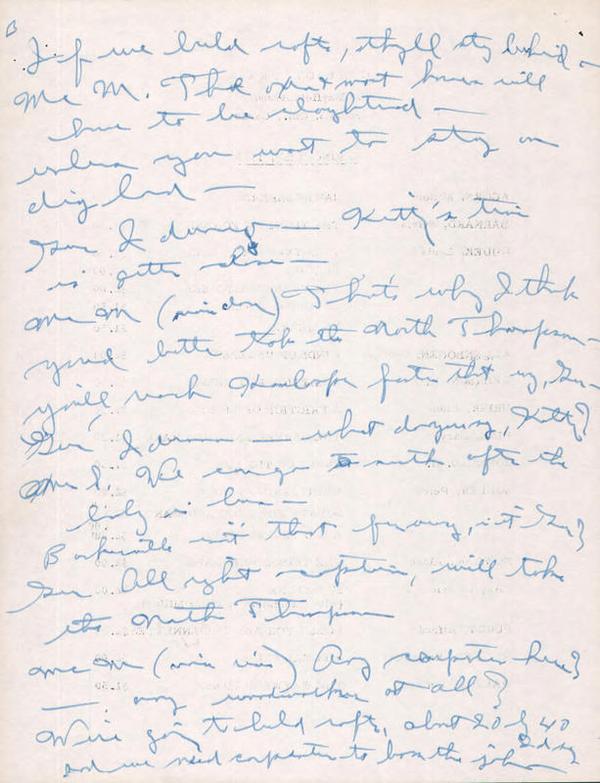 B
If we build rafts, they'll stay behind —
Mc M. The oxen & most horses will
have to be slaughtered —
unless you want to stay on
dry land —
Gus I dunno — Kitty's time
is gettin close —
Mc M (wise dom) That's why I think
you'd better take the North Thompson —
you'll reach Kamloops faster that way, Gus —
Gus I dunno — what do you say, Kitty?
Mrs S. We can go south after the
baby is born —
isn't that far away, is it Gus?
Gus All right captain, we'll take
the North Thompson
Mc M (         ) Any carpenters here?
— any woodworkers at all?
We're going to build rafts, about 20 by 40
and we need carpenters to boss the job